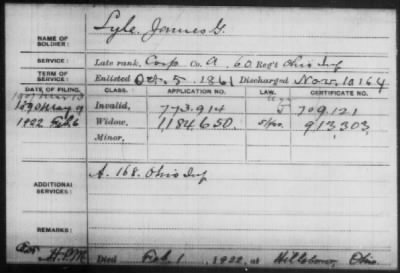 NAME OF SOLDIER: Lyle, James G.
SERVICE: Late rank, Corp. Co. A, 60 Reg't Ohio Inf
TERM OF SERVICE: Enlisted Oct. 5, 1861 Discharged Nov. 10, 1864
DATE OF FILING. CLASS. APPLICATION NO. LAW. CERTIFICATE NO.
1890 May 9 Invalid, 773.914 709.121
1922 Feb 6 Widow, 1184650. 913303
Minor,
ADDITIONAL SERVICES: A. 168. Ohio Inf
REMARKS:
Died Feb. 1, 1922, at Hillsboro, Ohio.